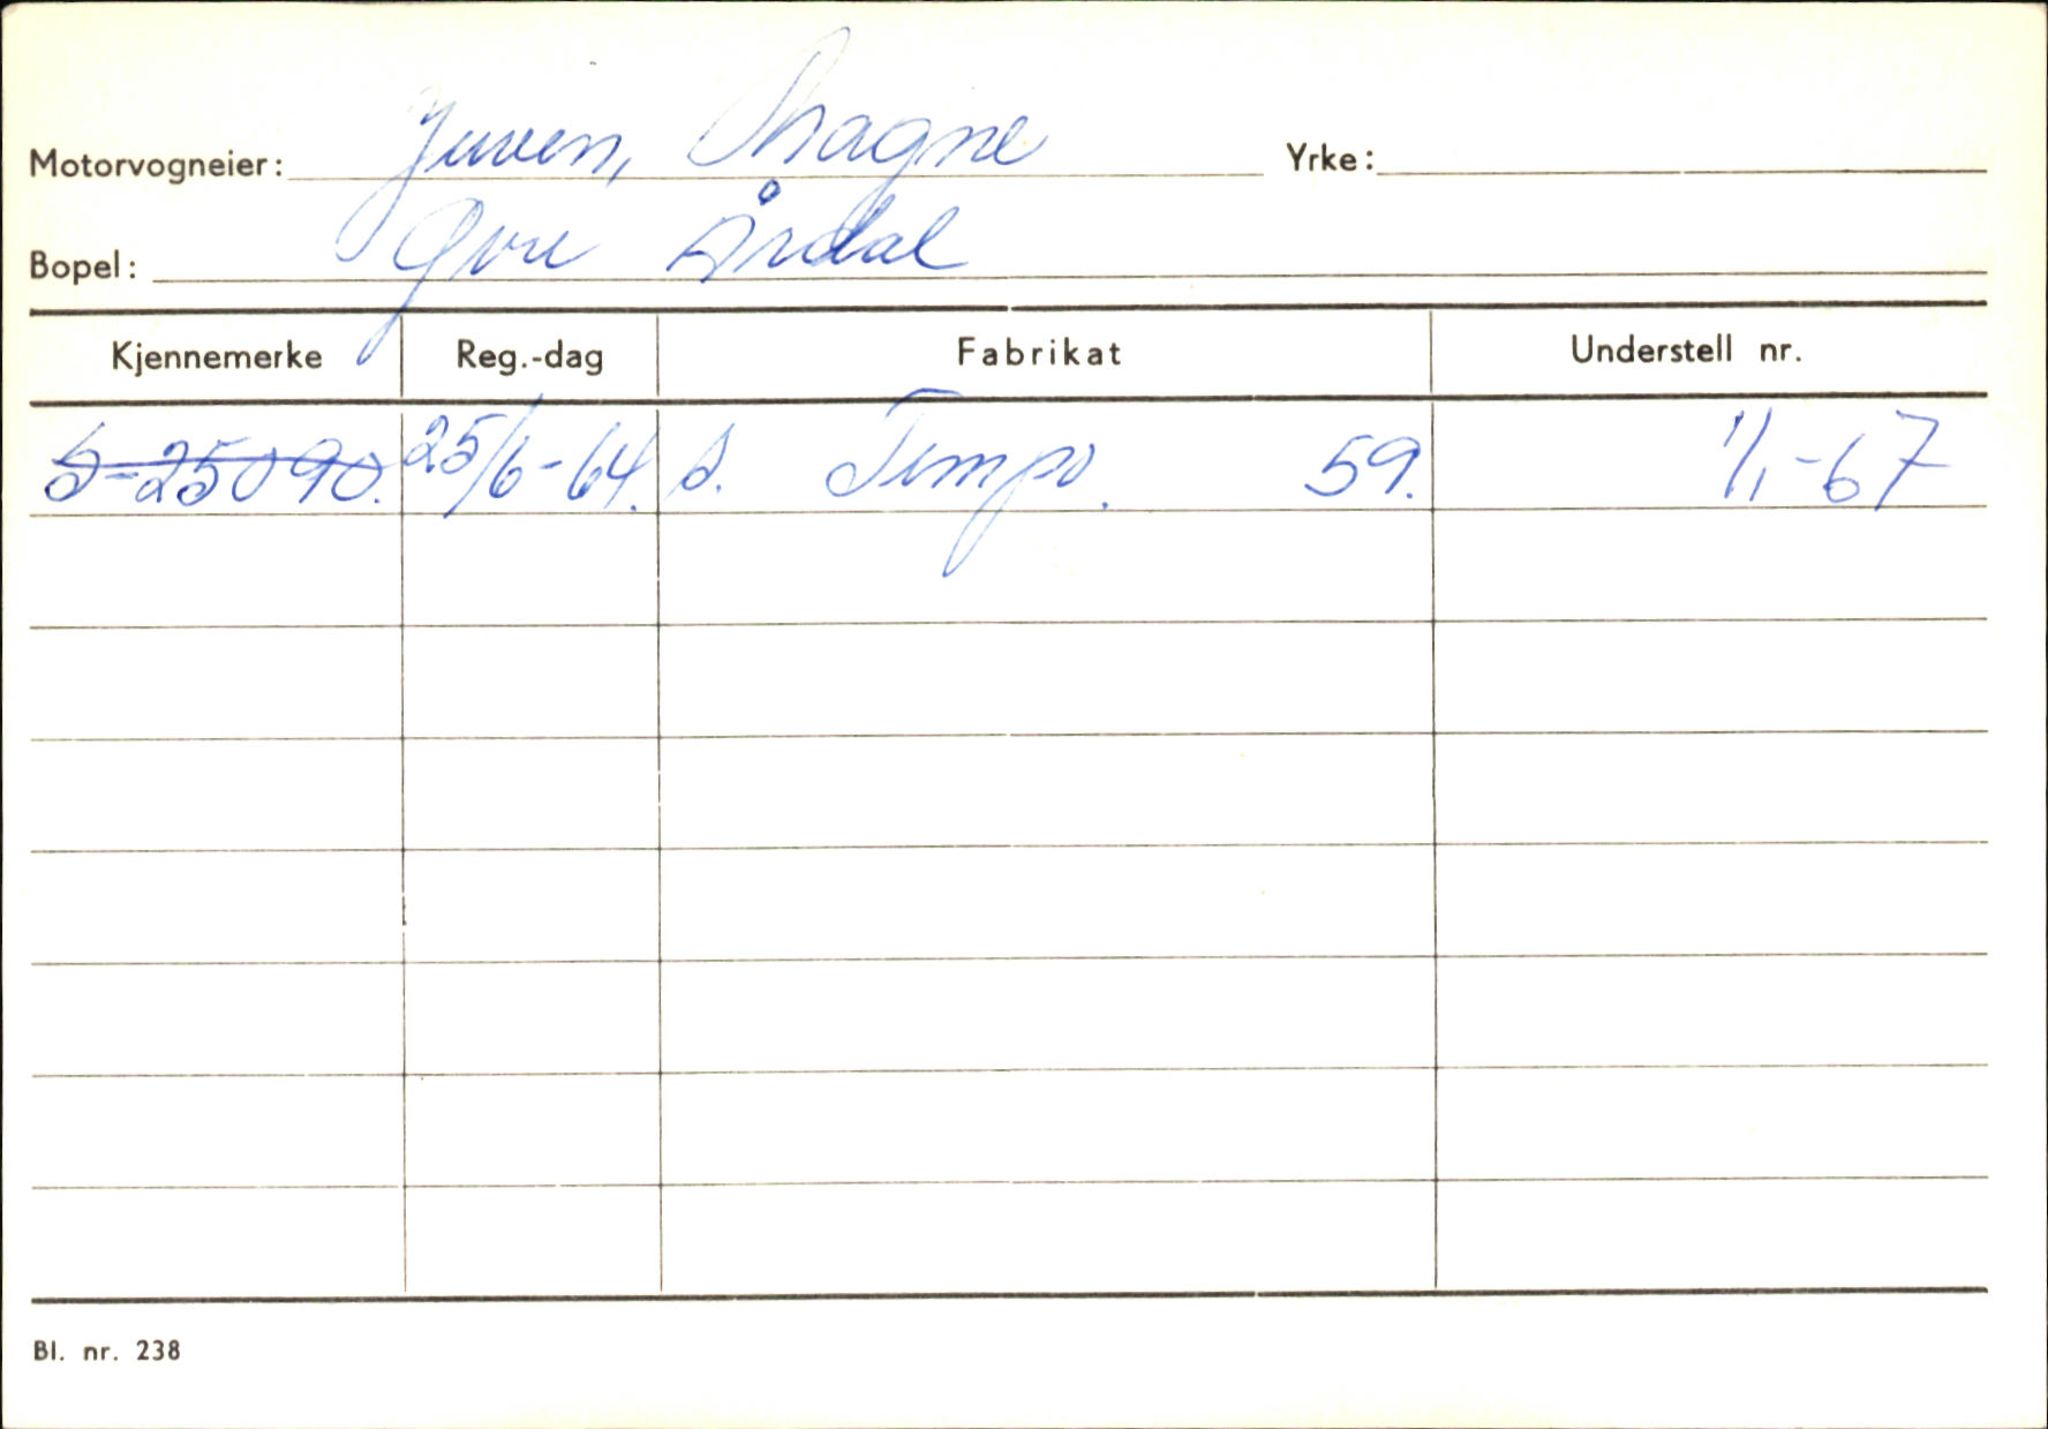 Motorvogneier: Juven, Magne Yrke:
Bopel: Øvre Årdal
Kjennemerke Reg.-dag Fabrikat Understell nr.
S-25090. 25/6-64. s. Tempo. 59. 1/1-67
Bl. nr. 238